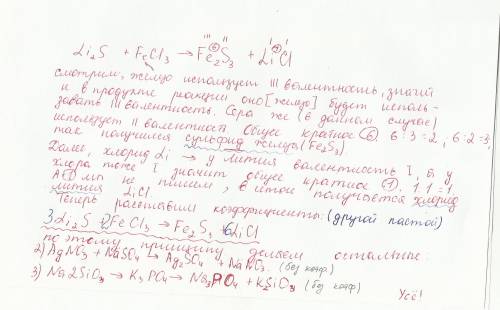 III ⑥ II I ① I
Li₂S + FeCl₃ → Fe₂S₃ + LiCl
смотрим, железо использует III валентность, значит
и в продукте реакции оно [железо] будет исполь-
зовать III валентность. Сера же (в данном случае)
использует II валентность. Общее кратное ⑥ 6:3=2, 6:2=3,
так получился сульфид железа (Fe₂S₃)
Далее, хлорид Li → у лития валентность I, а у
хлора тоже I, значит общее кратное ①. 1:1=1,
но мы не пишем, в итоге получается хлорид
лития LiCl.
Теперь расставим коэффициенты: (другой пастой)
3Li₂S + 2FeCl₃ → Fe₂S₃ + 6LiCl
по этому принципу делаем остальные:
2) AgNO₃ + NaSO₄ → Ag₂SO₄ + NaNO₃. (без коэф.)
3) Na2SiO₃ → K₃PO₄ → Na₃PO₄ + K₂SiO₃ (без коэф)
Усё!